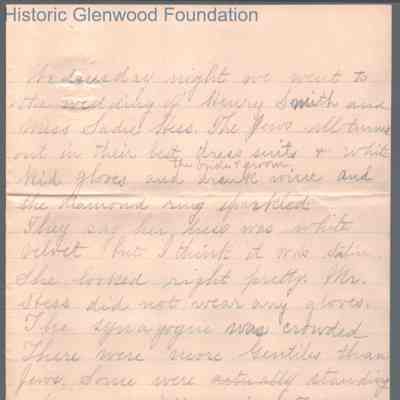 Historic Glenwood Foundation
Wednesday night we went to
the wedding of Henry Smith and
Miss Sadie Hess. The Jews all turned
out in their best dress suits & white
the bride & groom
kid gloves and drank wine and
the diamond ring sparkled
They say her dress was white
velvet but I think it was satin.
She looked right pretty. Mr.
Hess did not wear any gloves.
The synagogue was crowded
There were more Gentiles than
Jews. Some were actually standing